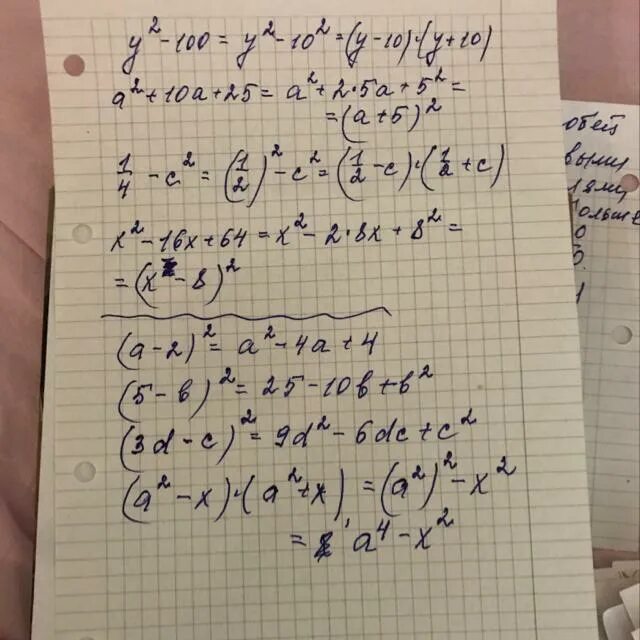 y² - 100 = y² - 10² = (y - 10)·(y + 10)
a² + 10a + 25 = a² + 2·5a + 5² =
= (a + 5)²
1/4 - c² = (1/2)² - c² = (1/2 - c)·(1/2 + c)
x² - 16x + 64 = x² - 2·8x + 8² =
= (x - 8)²
(a - 2)² = a² - 4a + 4
(5 - b)² = 25 - 10b + b²
(3d - c)² = 9d² - 6dc + c²
(a² - x)·(a² + x) = (a²)² - x²
= a⁴ - x²